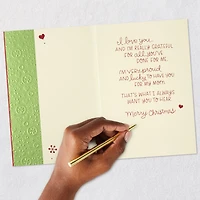 I love you,
AND I'M REALLY GRATEFUL
FOR all you've
DONE FOR ME.
I'M VERY PROUD
AND lucky TO HAVE YOU
FOR MY MOM.
THAT'S WHAT I ALWAYS
WANT YOU TO HEAR.
Merry Christmas